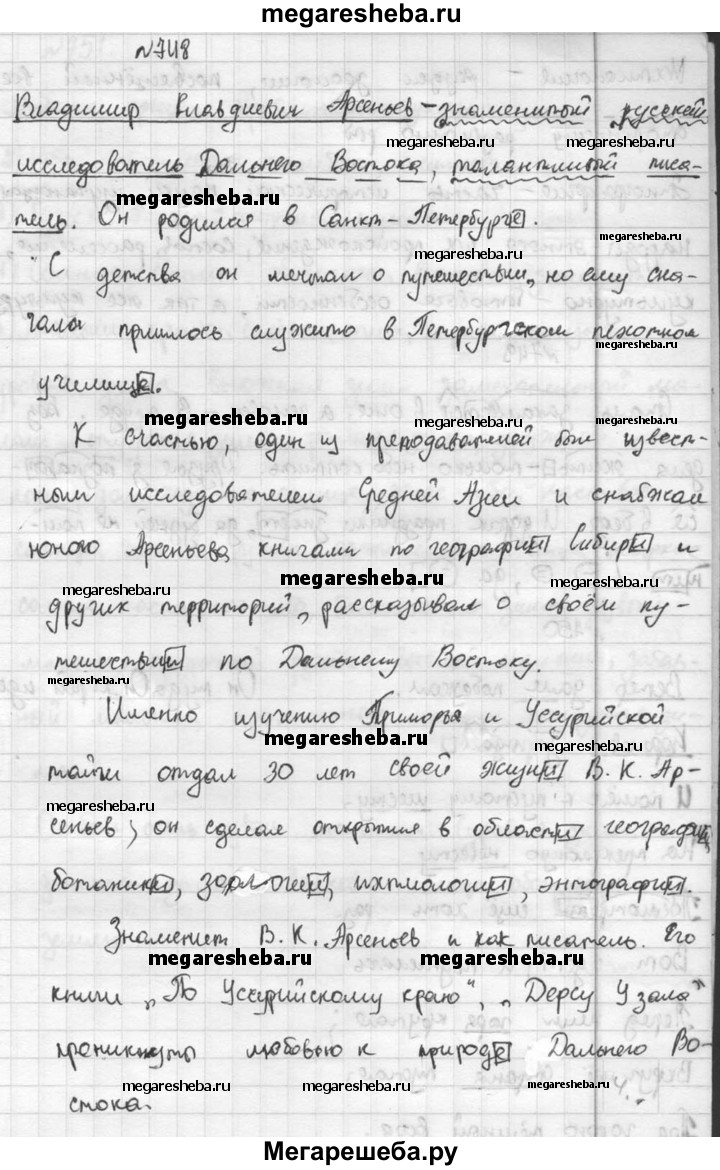 megaresheba.ru
№748
Владимир Клавдиевич Арсеньев – знаменитый русский
megaresheba.ru megaresheba.ru
исследователь Дальнего Востока, талантливый писа-
megaresheba.ru
тель. Он родился в Санкт-Петербурге.
megaresheba.ru
С детства он мечтал о путешествии, но ему сна-
чала пришлось служить в Петербургском пехотном
megaresheba.ru
училище.
megaresheba.ru
К счастью, один из преподавателей был извест-
megaresheba.ru
ным исследователем Средней Азии и снабжал
юного Арсеньева книгами по географии Сибири и
megaresheba.ru megaresheba.ru megaresheba.ru
других территорий, рассказывал о своём пу-
тешествии по Дальнему Востоку.
megaresheba.ru megaresheba.ru
Именно изучению Приморья и Уссурийской
megaresheba.ru megaresheba.ru
тайги отдал 30 лет своей жизни В. К. Ар-
megaresheba.ru
сеньев; он сделал открытия в области географии,
megaresheba.ru
ботаники, зоологии, ихтиологии, энтографии.
megaresheba.ru
Знаменит В. К. Арсеньев и как писатель. Его
megaresheba.ru megaresheba.ru
книги „По Уссурийскому краю“, „Дерсу Узала“
проникнуты любовью к природе Дальнего Во-
megaresheba.ru megaresheba.ru megaresheba.ru
стока.
Мегарешеба.ру